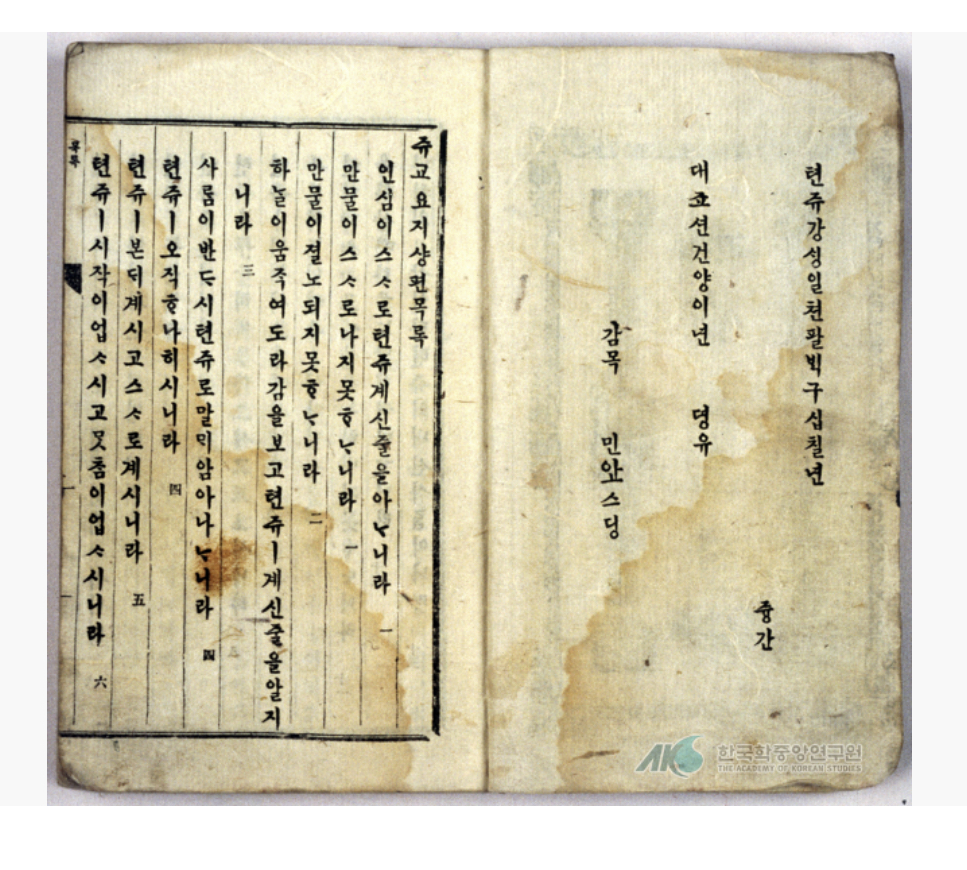 텬쥬강ᄉᆡᆼ일쳔팔ᄇᆡᆨ구십칠년
대죠션건양이년 뎡유
즁간
감목 민안스딩
쥬교요지샹편목록
인심이스ᄉᆞ로텬쥬계신줄을아ᄂᆞ니라 一
만물이스ᄉᆞ로나지못ᄒᆞᄂᆞ니라 一
만물이졀노되지못ᄒᆞᄂᆞ니라 二
하ᄂᆞᆯ이움즉여도라감을보고텬쥬ㅣ계신줄을알지
니라 三
사ᄅᆞᆷ이반ᄃᆞ시텬쥬로말ᄆᆡ암아나ᄂᆞ니라 四
텬쥬ㅣ오직ᄒᆞ나히시니라 四
텬쥬ㅣ본ᄃᆡ계시고스ᄉᆞ로계시니라 五
텬쥬ㅣ시작이업ᄉᆞ시고ᄆᆞᆺᄎᆞᆷ이업ᄉᆞ시니라 六
목록
一
한국학중앙연구원
THE ACADEMY OF KOREAN STUDIES